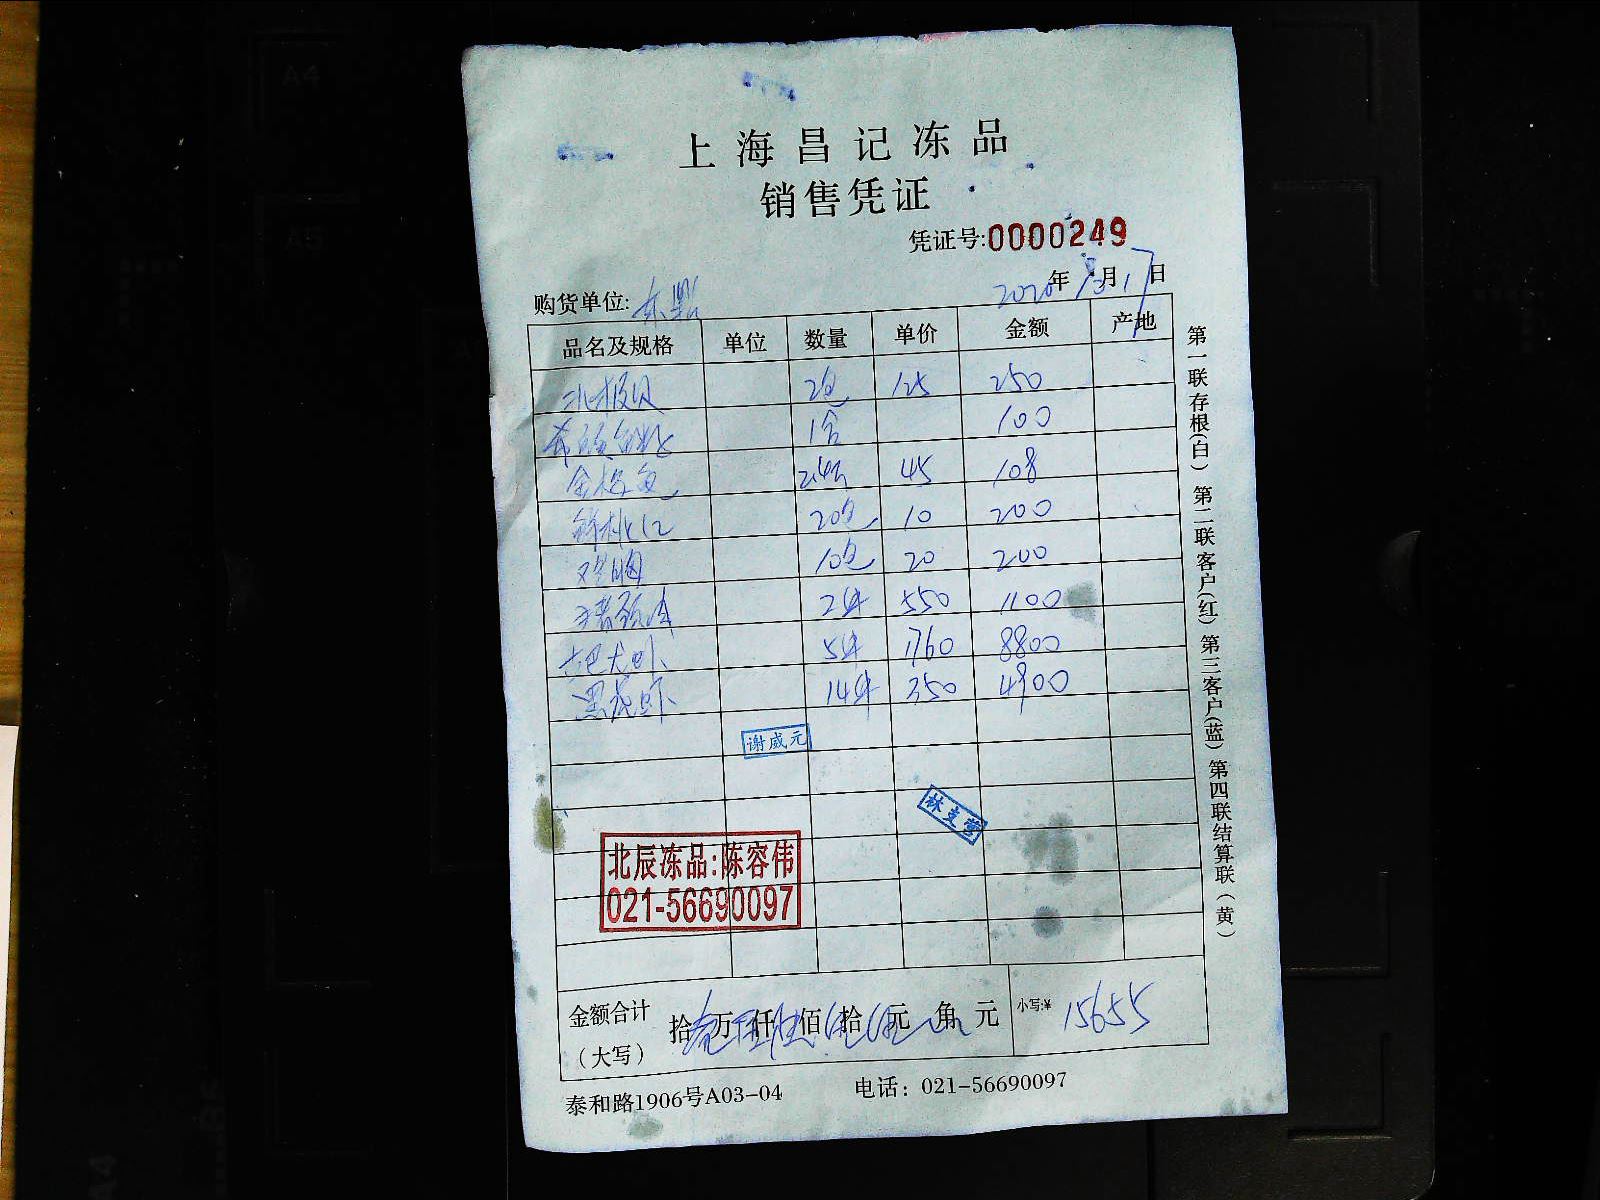 上海昌记冻品
销售凭证
凭证号:0000249
购货单位: 2020年 月 日
品名及规格 单位 数量 单价 金额 产地
北极贝 2包 125 250
1合 100
金枪鱼 45 108
20包 10 200
鸡胸 10包 20 200
猪颈肉 2件 550 1100
大虾 5件 1760 8800
黑虎虾 14件 350 4900
谢威元
林支营
北辰冻品:陈容伟
021-56690097
金额合计
(大写)
拾 万 仟 佰 拾 元 角 元 小写:¥ 15655
泰和路1906号A03-04 电话: 021-56690097
第一联存根(白) 第二联客户(红) 第三客户(蓝) 第四联结算联(黄)
A4
A5